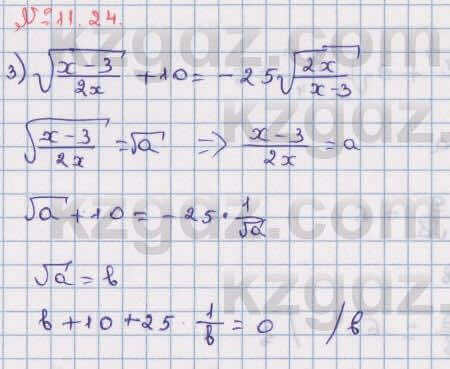 № 11.24.
3) √((x-3)/(2x)) + 10 = -25√((2x)/(x-3))
√((x-3)/(2x)) = √a ⇒ (x-3)/(2x) = a
√a + 10 = -25 · 1/√a
√a = b
b + 10 + 25 · 1/b = 0 / b
kzgaz.com
kzgaz.com
kzgaz.com